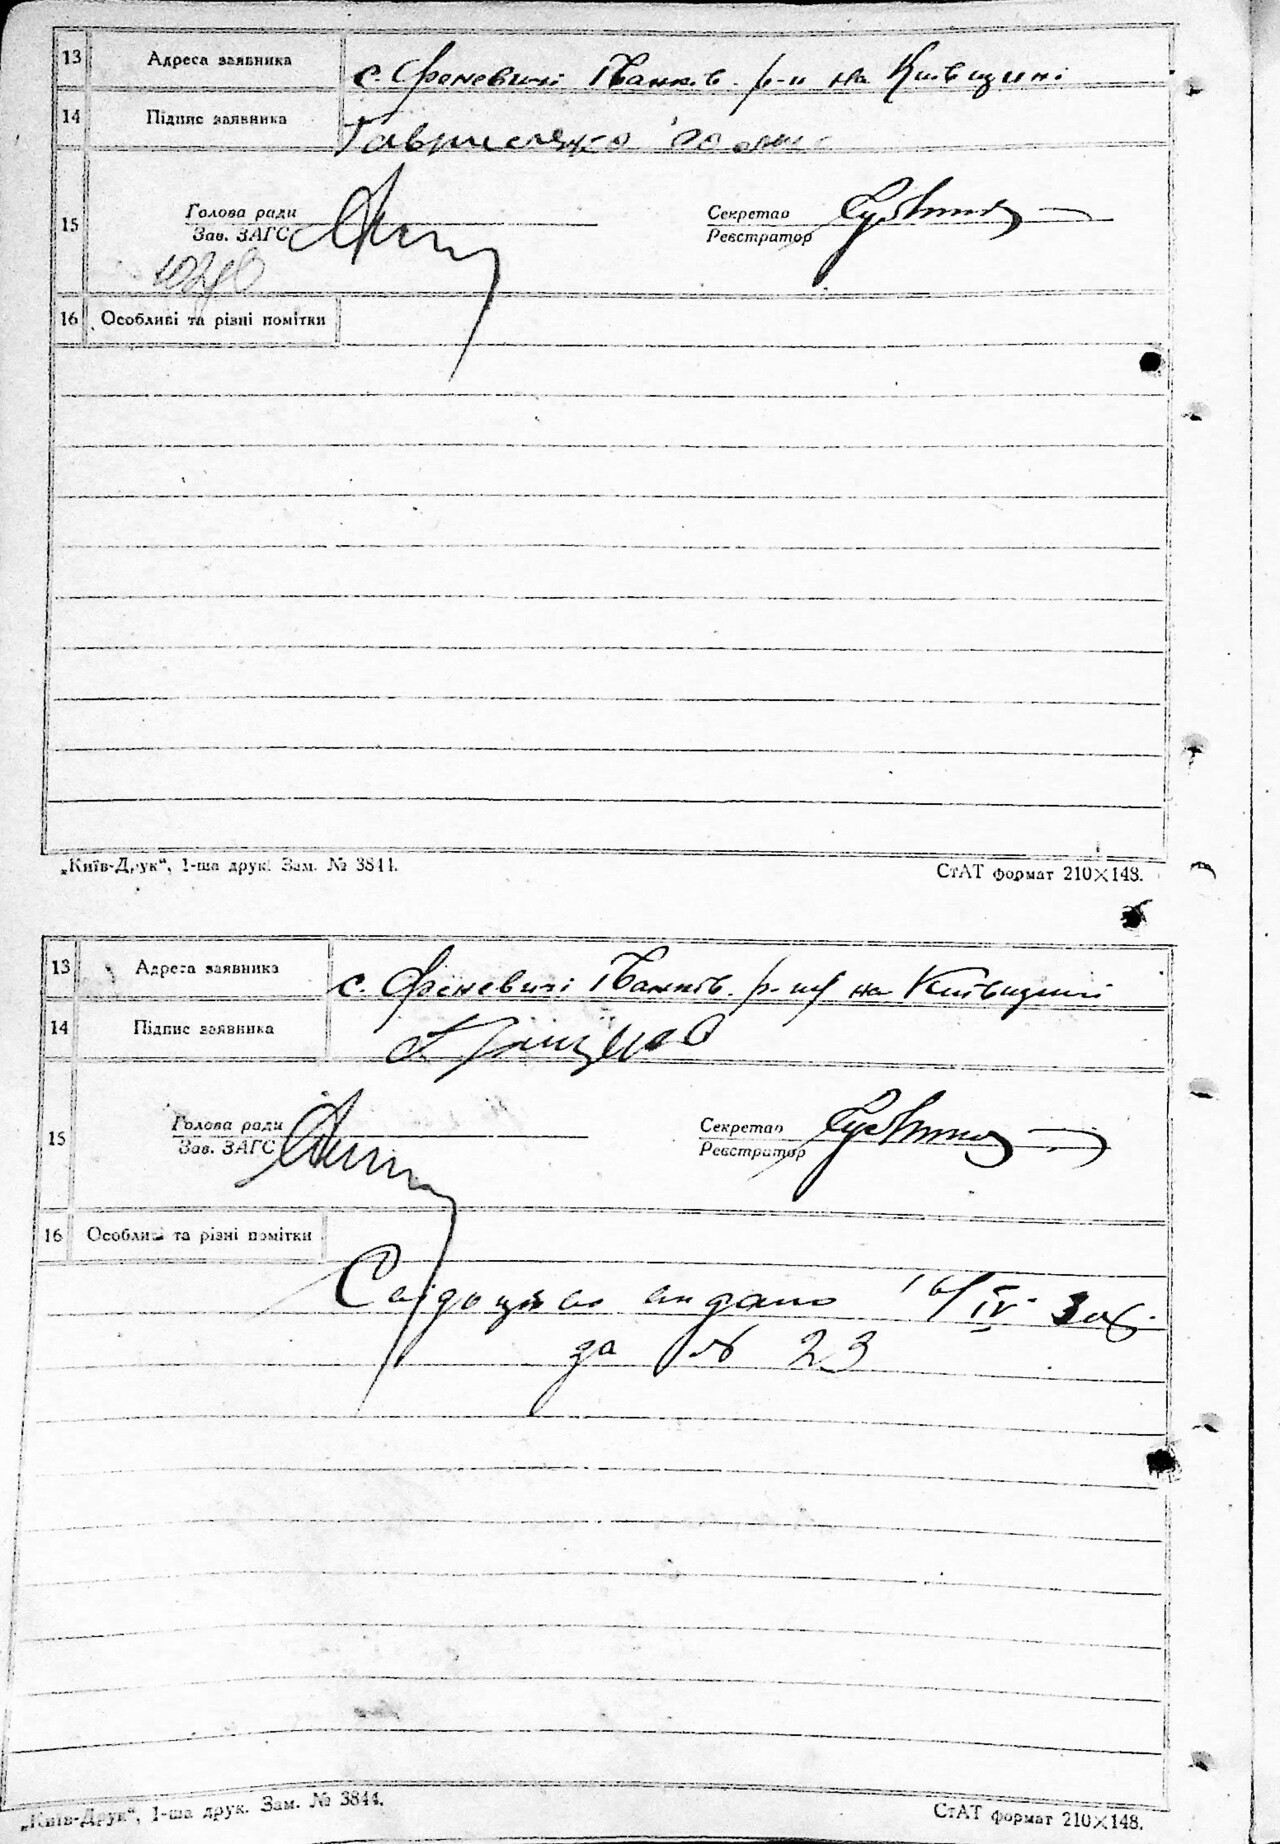 13 Адреса заявника с. Феневичі Іванків. р-н на Київщині
14 Підпис заявника Гавриленко
15 Голова ради Секретар
Зав. ЗАГС Реєстратор
16 Особливі та різні помітки
„Київ-Друк“, 1-ша друк. Зам. № 3844. СтАТ формат 210×148.
13 Адреса заявника с. Феневичі Іванків. р-н на Київщині
14 Підпис заявника
15 Голова ради Секретар
Зав. ЗАГС Реєстратор
16 Особливі та різні помітки
Свідоцтво видано 16/IV-
за № 23
„Київ-Друк“, 1-ша друк. Зам. № 3844. СтАТ формат 210×148.